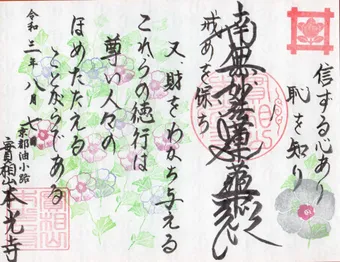 信ずる心あり
恥を知り
南無妙法蓮華経
戒めを保ち
又、財をわかち与える
これらの徳行は
尊い人々の
ほめたたえる
ところである
令和三年八月七日
京都油小路
實相山本光寺